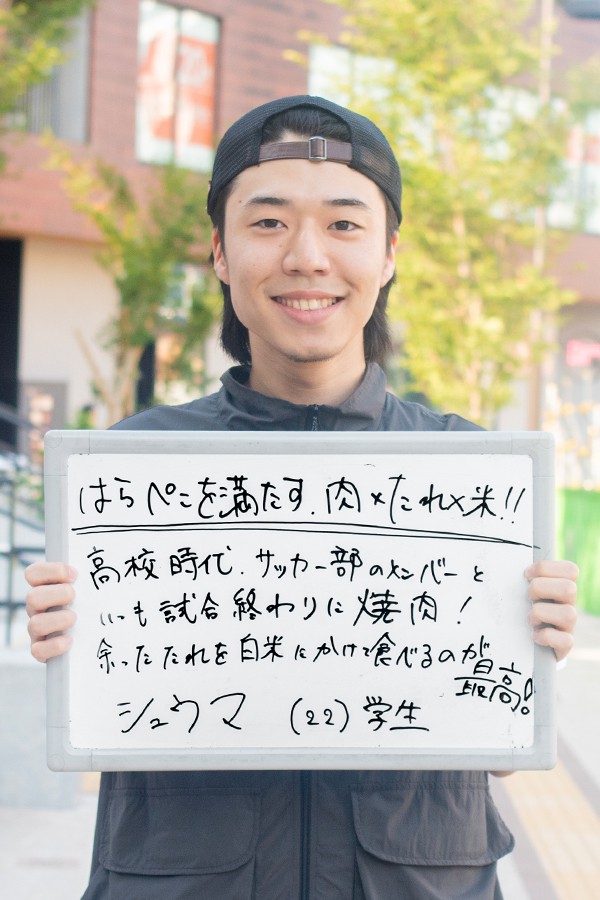 はらぺこを満たす、肉×たれ×米!!
高校時代、サッカー部のメンバーと
いつも試合終わりに焼肉!
余ったたれを白米にかけて食べるのが最高!
シュウマ (22) 学生